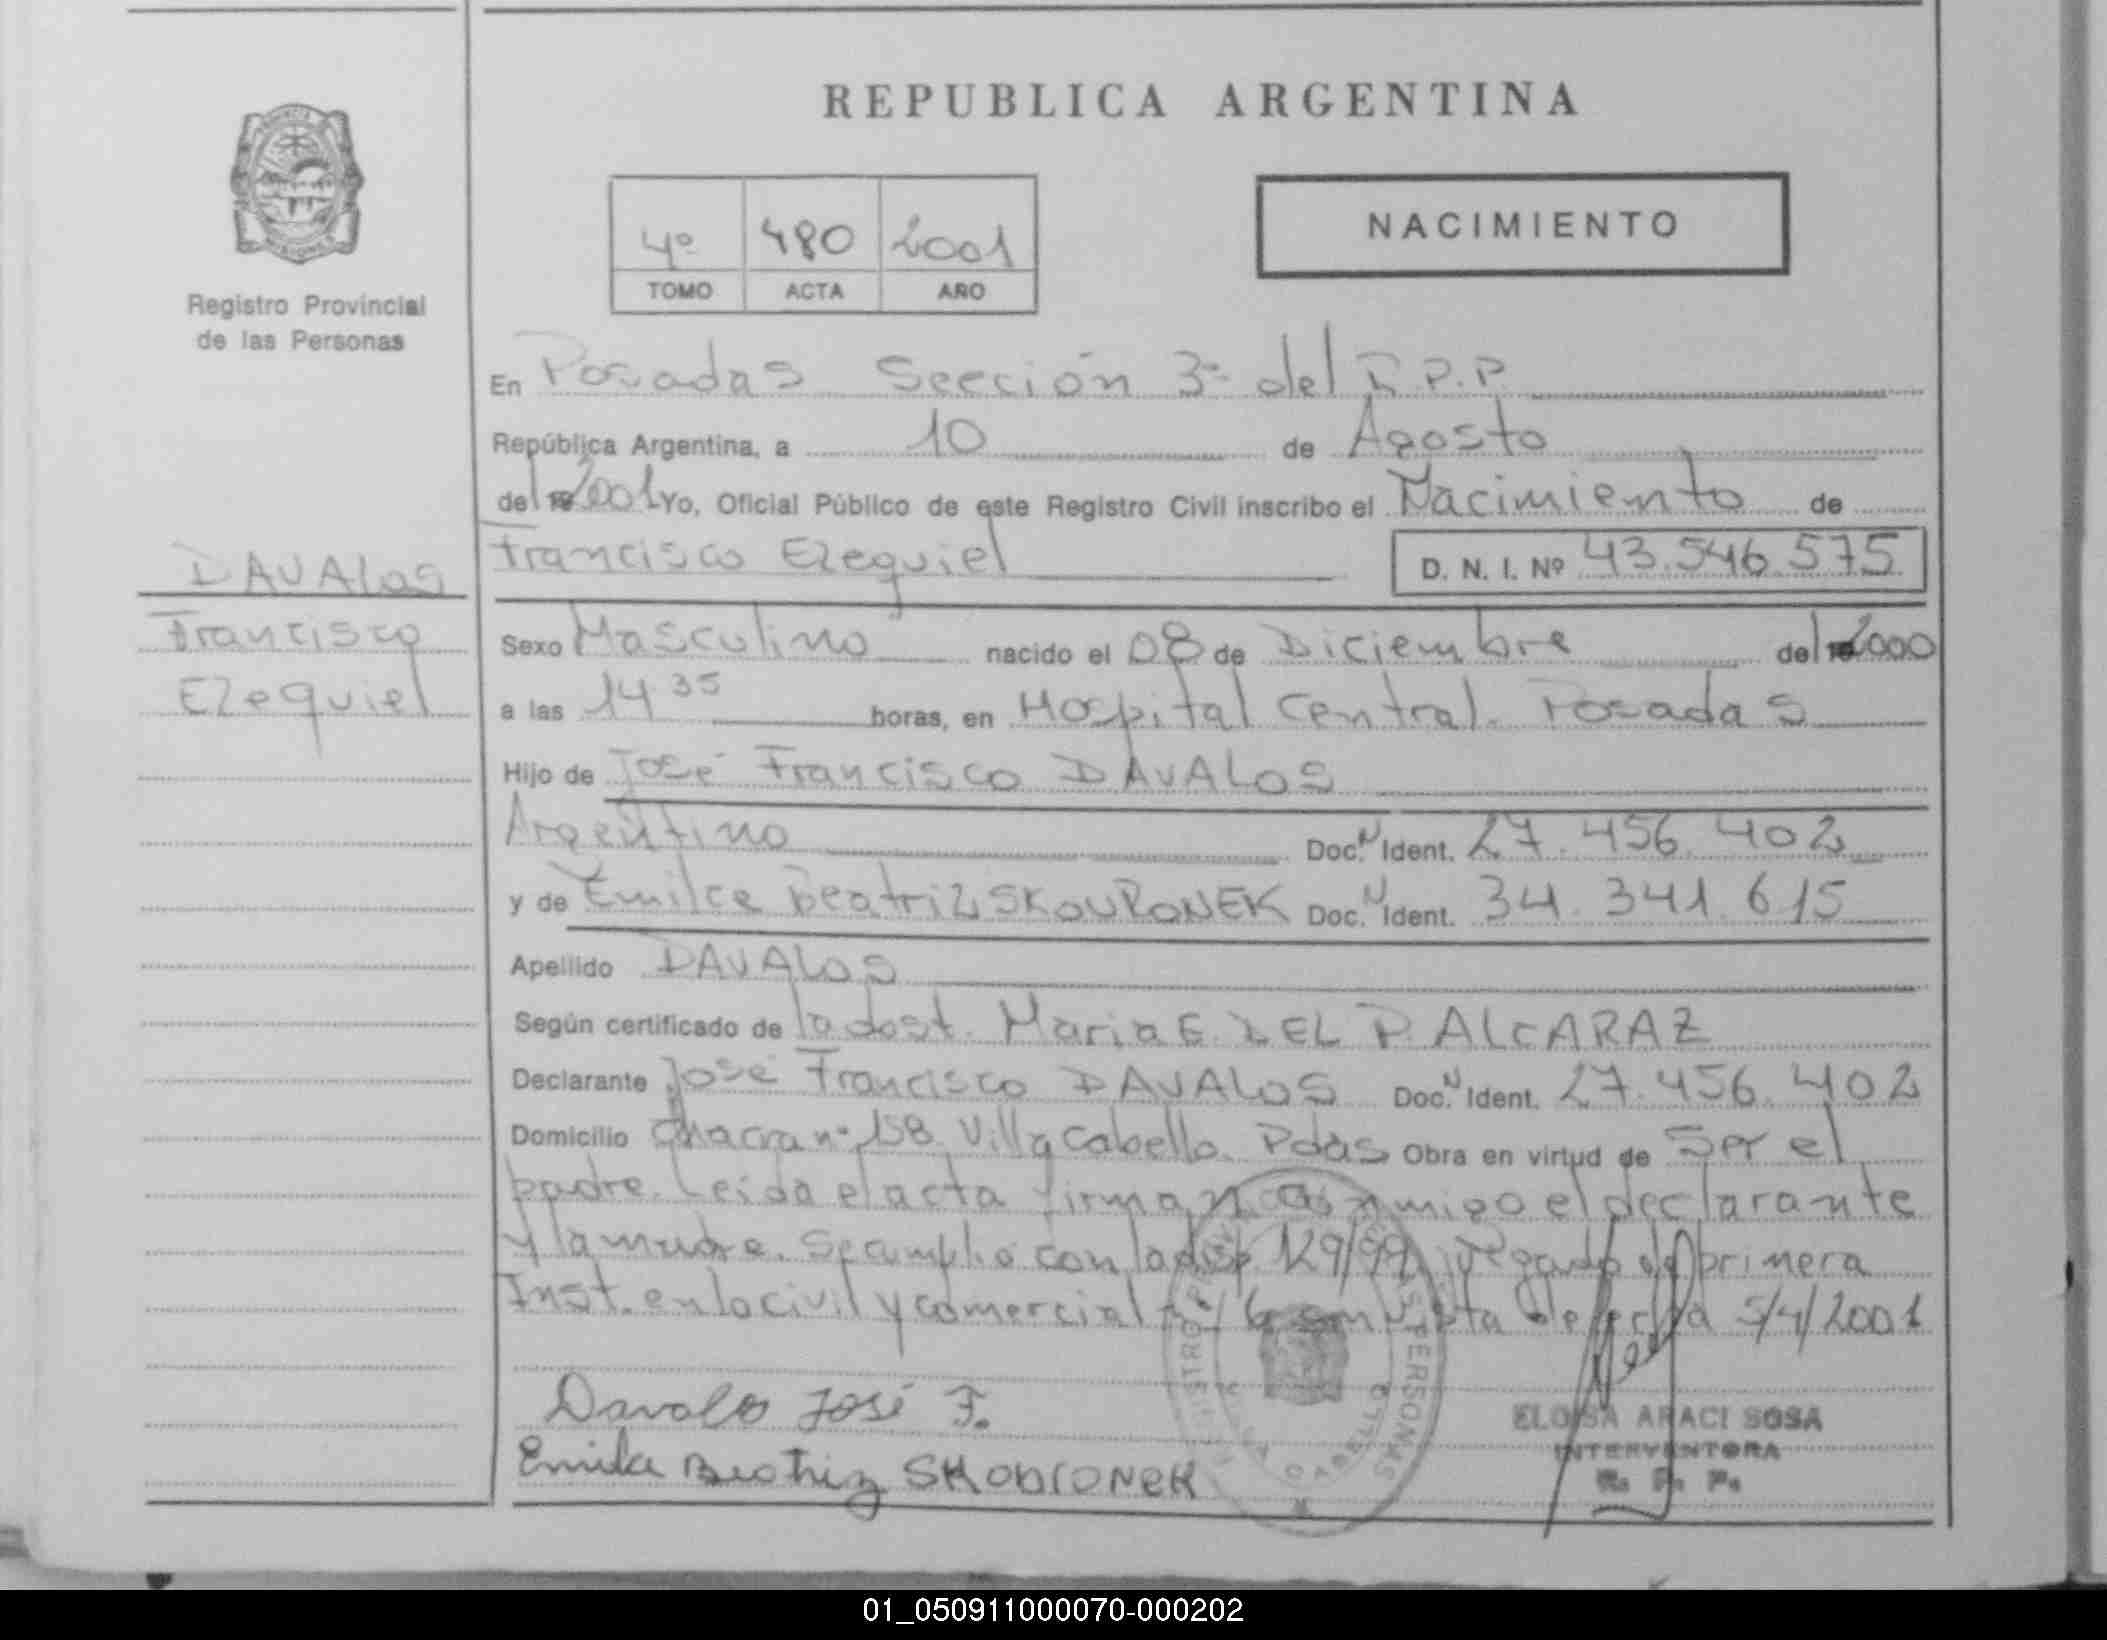 REPUBLICA ARGENTINA
Registro Provincial
de las Personas
4º 480 2001
TOMO ACTA AÑO
NACIMIENTO
En Posadas Sección 3ª del R.P.P.
República Argentina, a 10 de Agosto
del 2001 Yo, Oficial Público de este Registro Civil inscribo el Nacimiento de
Francisco Ezequiel D. N. I. Nº 43.546.575
DAVALOS
Francisco
Ezequiel
Sexo Masculino nacido el 08 de Diciembre del 2000
a las 14 35 horas, en Hospital Central. Posadas
Hijo de José Francisco DAVALOS
Argentino Doc. N Ident. 27.456.402
y de Emilce Beatriz SKOVRONEK Doc. N Ident. 34.341.615
Apellido DAVALOS
Según certificado de la obst. Maria E. DEL P. ALCARAZ
Declarante José Francisco DAVALOS Doc. N Ident. 27.456.402
Domicilio Chacra nº 158 Villa Cabello. Pdas Obra en virtud de Ser el
padre. Leida el acta firman conmigo el declarante
y la madre. Se cumplió con la disp 129/99 juzgado de primera
Inst. en lo civil y comercial 6 con vista de fecha 5/4/2001
Davalos José F.
Emilce Beatriz SKOURONEK
ELOISA ARACI SOSA
INTERVENTORA
R. P. P.
01_050911000070-000202